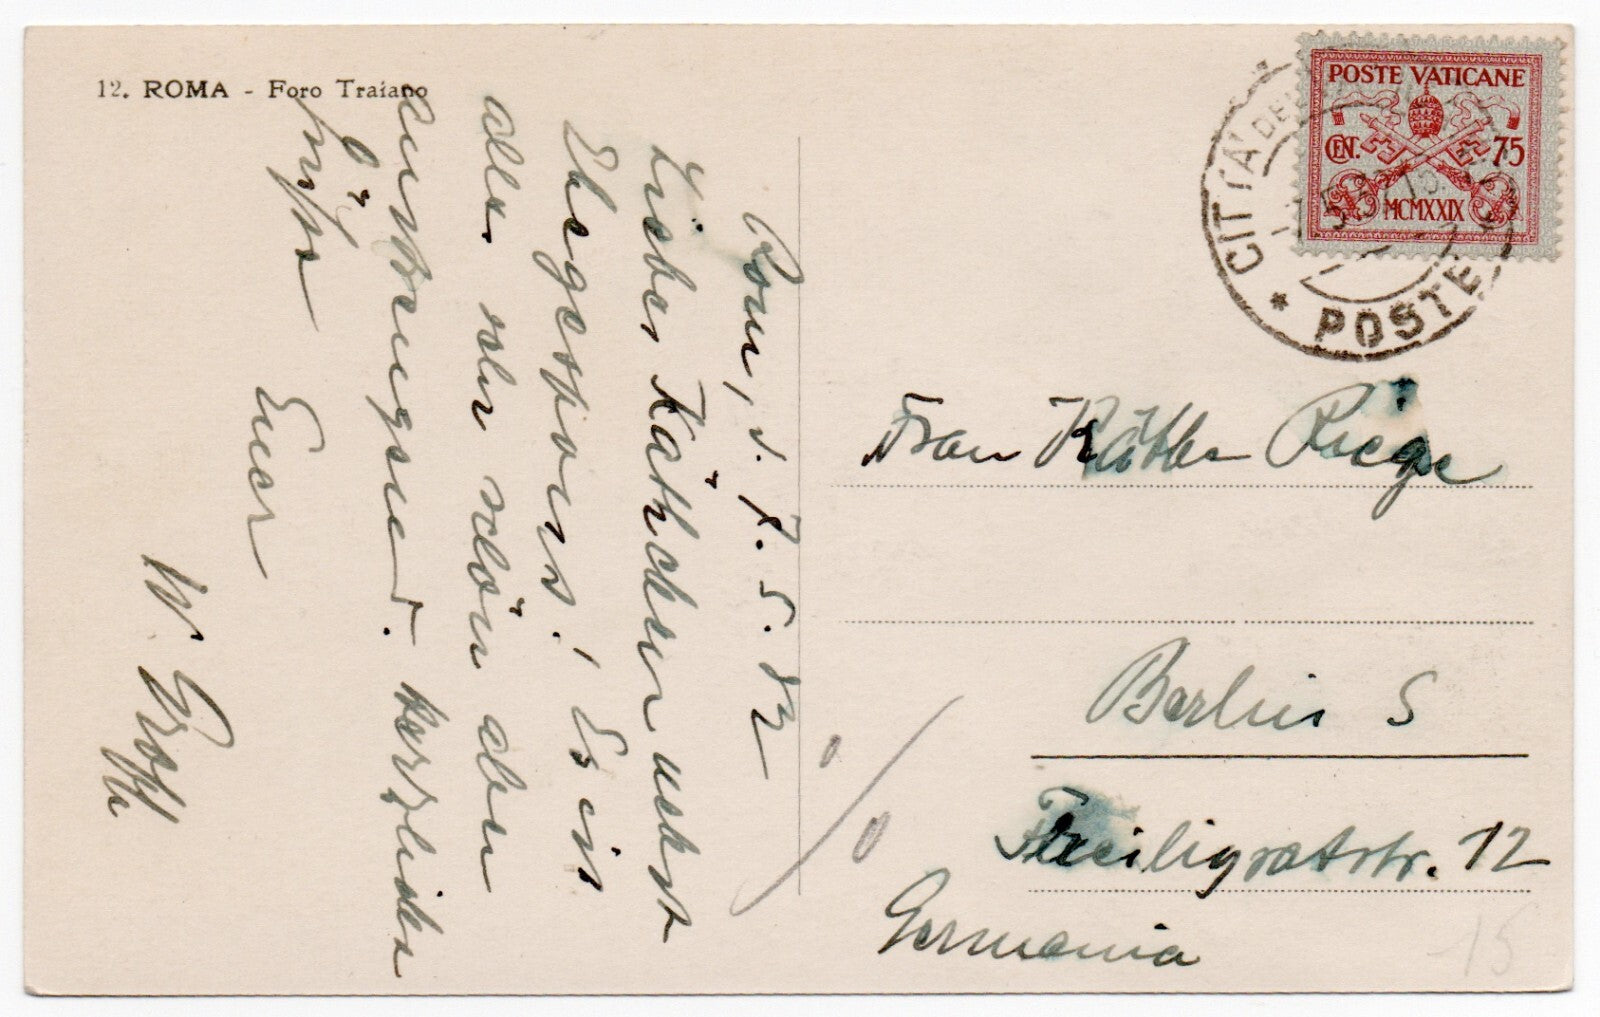 12. ROMA - Foro Traiano
Rom, d. 7. 5. 32
Liebes Käthchen nebst
Ehegespons! Es ist
alles sehr schön aber
anstrengend. Herzliche
Grüße
Euer
W.
POSTE VATICANE
CENT. 75
MCMXXIX
CITTA' DEL
POSTE
Frau Käthe Riege
Berlin S
Freiligratstr. 12
Germania
15